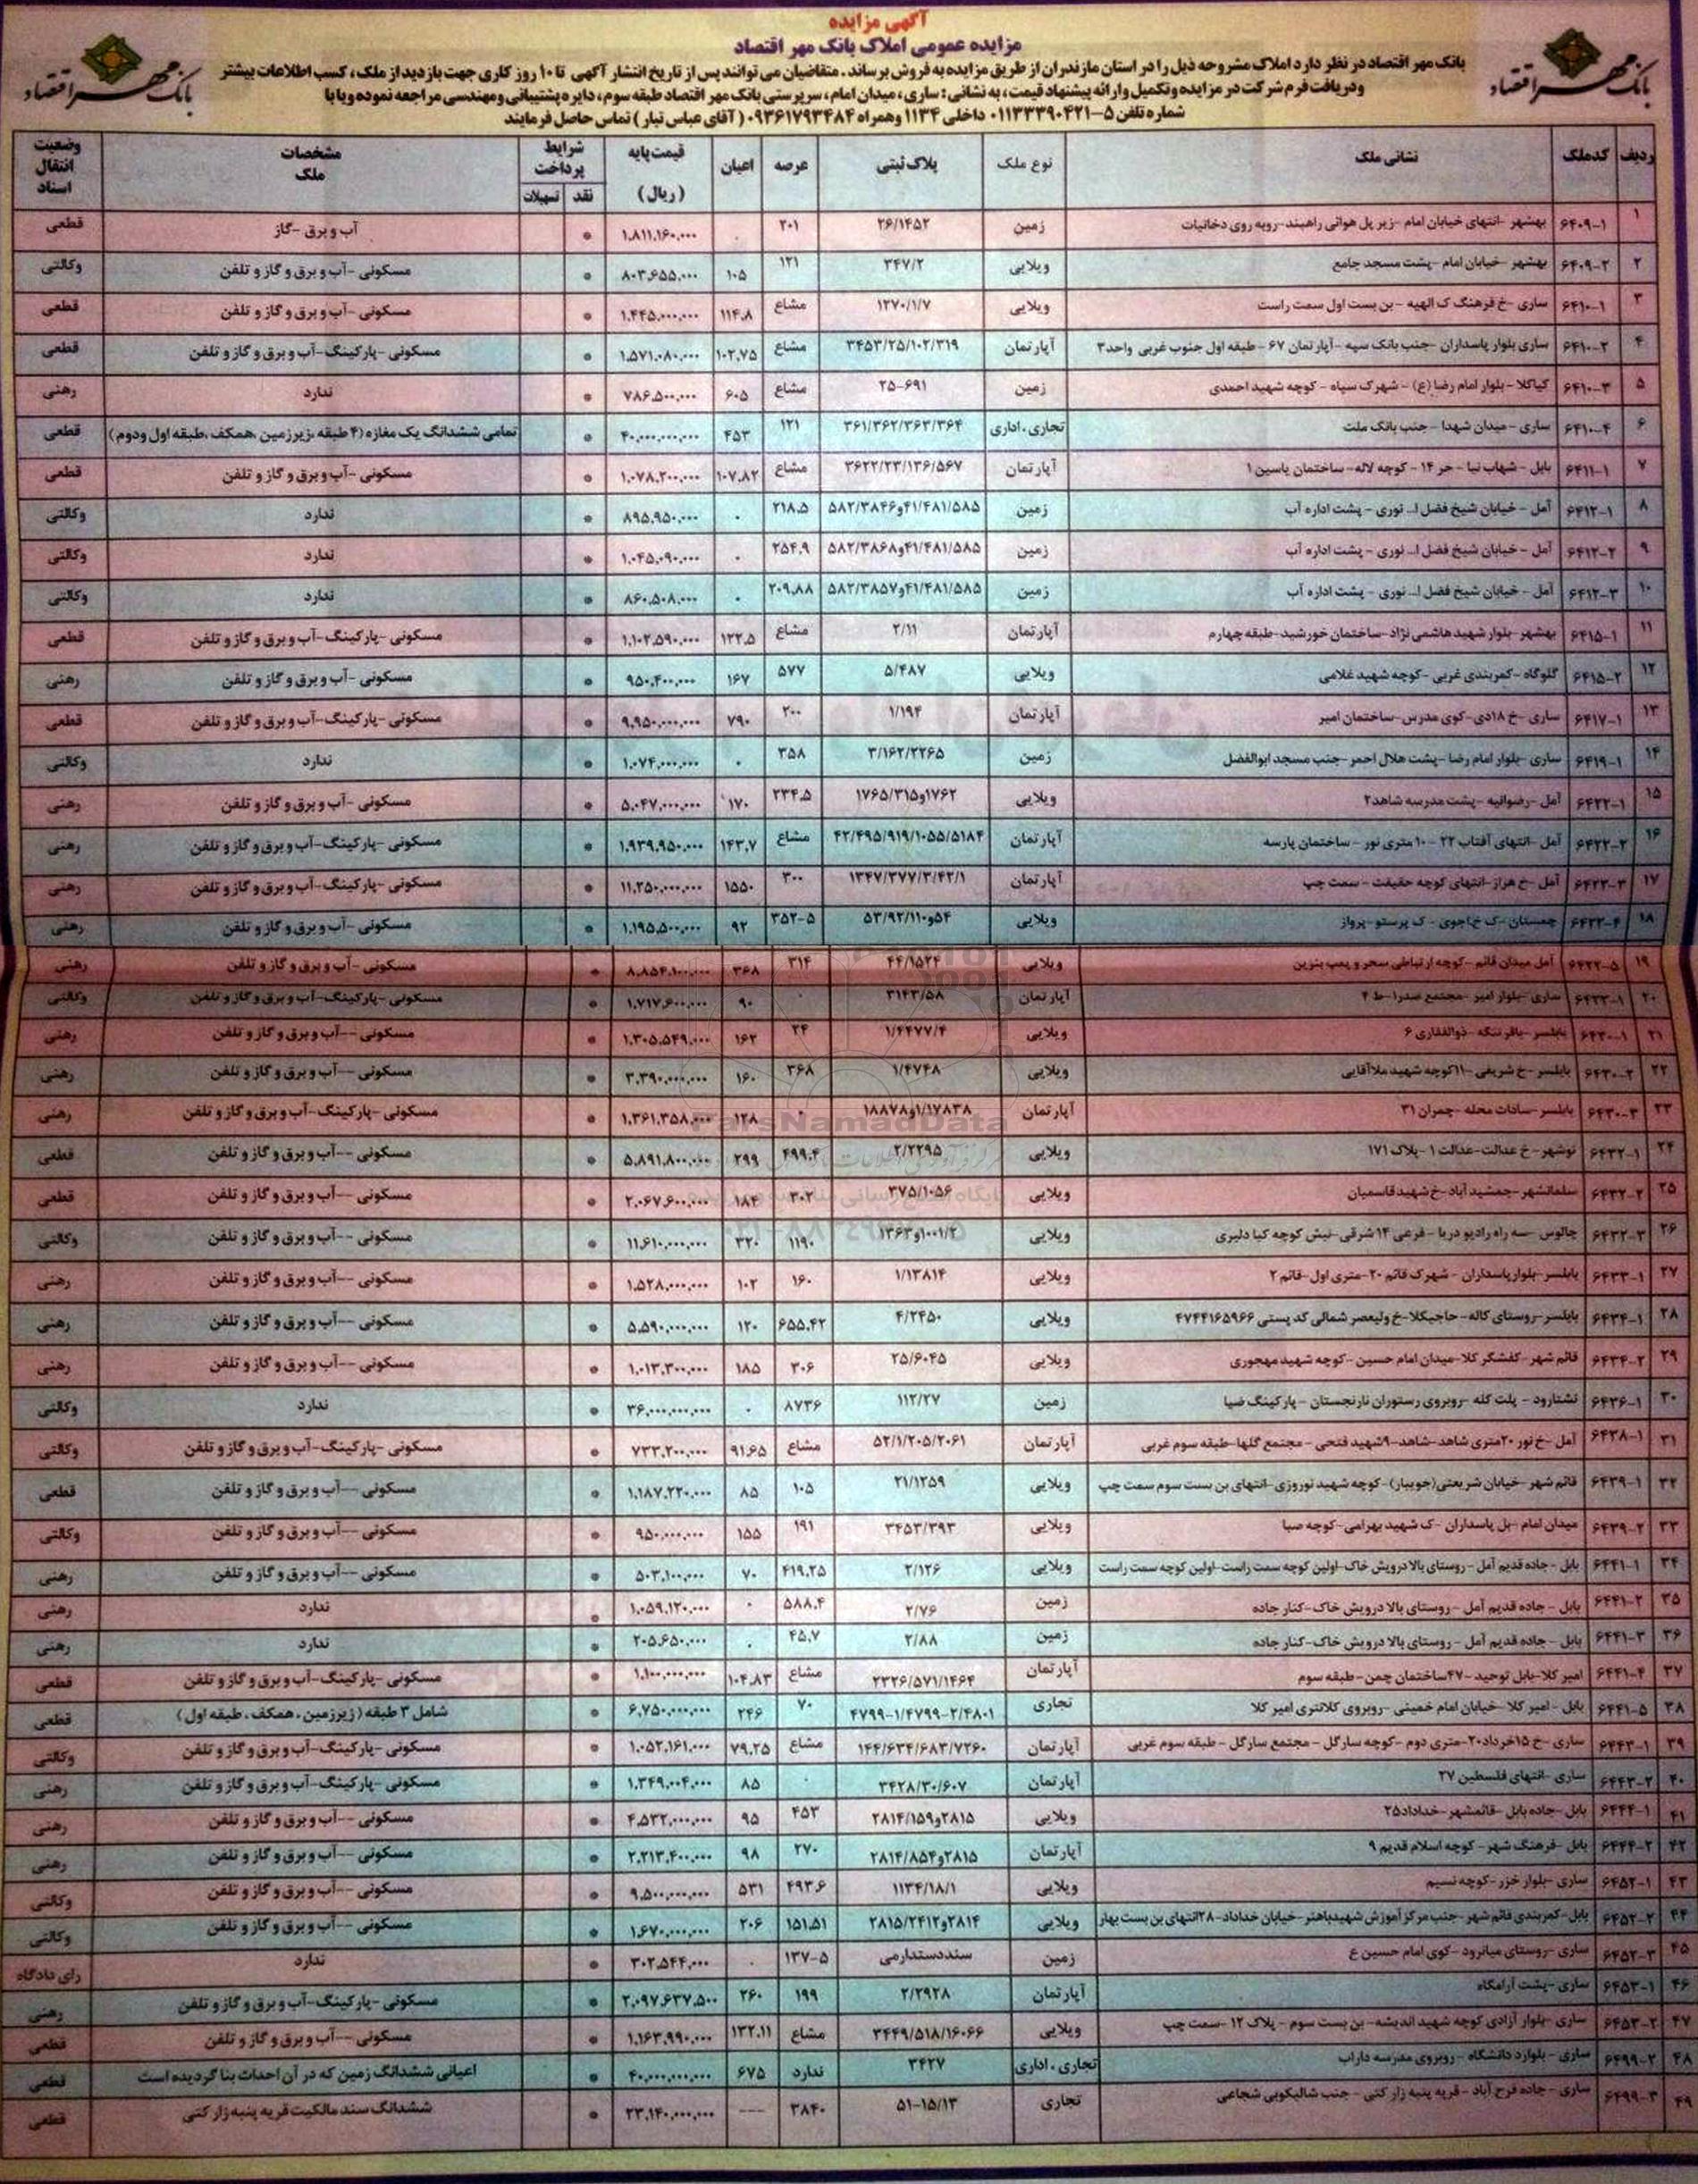 آگهی مزایده
مزایده عمومی املاک بانک مهر اقتصاد
بانک مهر اقتصاد در نظر دارد املاک مشروحه ذیل را در استان مازندران از طریق مزایده به فروش برساند. متقاضیان می توانند پس از تاریخ انتشار آگهی تا ۱۰ روز کاری جهت بازدید از ملک، کسب اطلاعات بیشتر
ودریافت فرم شرکت در مزایده وتکمیل وارائه پیشنهاد قیمت، به نشانی: ساری، میدان امام، سرپرستی بانک مهر اقتصاد طبقه سوم، دایره پشتیبانی ومهندسی مراجعه نموده ویا با
شماره تلفن ۵-۰۱۱۳۳۳۹۰۴۲۱ داخلی ۱۱۳۴ وهمراه ۰۹۳۶۱۷۹۳۴۸۴ (آقای عباس تبار) تماس حاصل فرمایند
بانک مهر اقتصاد
بانک مهر اقتصاد
ردیف کدملک نشانی ملک نوع ملک پلاک ثبتی عرصه اعیان قیمت پایه (ریال) شرایط پرداخت نقد تسهیلات مشخصات ملک وضعیت انتقال اسناد
۱ ۶۴۰۹-۱ بهشهر -انتهای خیابان امام -زیر پل هوائی راهبند-روبه روی دخانیات زمین ۲۶/۱۴۵۲ ۲۰۱ ۰ ۱.۸۱۱.۱۶۰.۰۰۰ * آب و برق -گاز قطعی
۲ ۶۴۰۹-۲ بهشهر -خیابان امام -پشت مسجد جامع ویلایی ۳۴۷/۲ ۱۲۱ ۱۰۵ ۸۰۳.۶۵۵.۰۰۰ * مسکونی -آب و برق و گاز و تلفن وکالتی
۳ ۶۴۱۰-۱ ساری -خ فرهنگ ک الهیه - بن بست اول سمت راست ویلایی ۱۲۷۰/۱/۷ مشاع ۱۱۴.۸ ۱.۴۴۵.۰۰۰.۰۰۰ * مسکونی -آب و برق و گاز و تلفن قطعی
۴ ۶۴۱۰-۲ ساری بلوار پاسداران -جنب بانک سپه -آپارتمان ۶۷ - طبقه اول جنوب غربی واحد۳ آپارتمان ۳۴۵۳/۲۵/۱۰۲/۳۱۹ مشاع ۱۰۲.۷۵ ۱.۵۷۱.۰۸۰.۰۰۰ * مسکونی -پارکینگ-آب و برق و گاز و تلفن قطعی
۵ ۶۴۱۰-۳ کیاکلا - بلوار امام رضا (ع) - شهرک سپاه - کوچه شهید احمدی زمین ۲۵-۶۹۱ مشاع ۶۰۵ ۷۸۶.۵۰۰.۰۰۰ * ندارد رهنی
۶ ۶۴۱۰-۴ ساری - میدان شهدا - جنب بانک ملت تجاری، اداری ۳۶۱/۳۶۲/۳۶۳/۳۶۴ ۱۲۱ ۴۵۳ ۴۰.۰۰۰.۰۰۰.۰۰۰ * تمامی ششدانگ یک مغازه (۴ طبقه ،زیرزمین ،همکف ،طبقه اول ودوم) قطعی
۷ ۶۴۱۱-۱ بابل - شهاب نیا - حر ۱۴ - کوچه لاله- ساختمان یاسین ۱ آپارتمان ۳۶۲۲/۲۳/۱۳۶/۵۶۷ مشاع ۱۰۷.۸۲ ۱.۰۷۸.۲۰۰.۰۰۰ * مسکونی -آب و برق و گاز و تلفن قطعی
۸ ۶۴۱۲-۱ آمل - خیابان شیخ فضل ا... نوری - پشت اداره آب زمین ۴۱/۴۸۱/۵۸۵و۵۸۲/۳۸۴۶ ۲۱۸.۵ ۰ ۸۹۵.۹۵۰.۰۰۰ * ندارد وکالتی
۹ ۶۴۱۲-۲ آمل - خیابان شیخ فضل ا... نوری - پشت اداره آب زمین ۴۱/۴۸۱/۵۸۵و۵۸۲/۳۸۶۸ ۲۵۴.۹ ۰ ۱.۰۴۵.۰۹۰.۰۰۰ * ندارد وکالتی
۱۰ ۶۴۱۲-۳ آمل - خیابان شیخ فضل ا... نوری - پشت اداره آب زمین ۴۱/۴۸۱/۵۸۵و۵۸۲/۳۸۵۷ ۲۰۹.۸۸ ۰ ۸۶۰.۵۰۸.۰۰۰ * ندارد وکالتی
۱۱ ۶۴۱۵-۱ بهشهر -بلوار شهید هاشمی نژاد-ساختمان خورشید-طبقه چهارم آپارتمان ۲/۱۱ مشاع ۱۲۲.۵ ۱.۱۰۲.۵۹۰.۰۰۰ * مسکونی -پارکینگ-آب و برق و گاز و تلفن قطعی
۱۲ ۶۴۱۵-۲ گلوگاه -کمربندی غربی -کوچه شهید غلامی ویلایی ۵/۴۸۷ ۵۷۷ ۱۶۷ ۹۵۰.۴۰۰.۰۰۰ * مسکونی -آب و برق و گاز و تلفن رهنی
۱۳ ۶۴۱۷-۱ ساری -خ ۱۸دی-کوی مدرس-ساختمان امیر آپارتمان ۱/۱۹۴ ۲۰۰ ۷۹۰ ۹.۹۵۰.۰۰۰.۰۰۰ * مسکونی -پارکینگ-آب و برق و گاز و تلفن قطعی
۱۴ ۶۴۱۹-۱ ساری -بلوار امام رضا -پشت هلال احمر -جنب مسجد ابوالفضل زمین ۳/۱۶۲/۲۲۶۵ ۳۵۸ ۰ ۱.۰۷۴.۰۰۰.۰۰۰ * ندارد وکالتی
۱۵ ۶۴۲۲-۱ آمل -رضوانیه -پشت مدرسه شاهد۲ ویلایی ۱۷۶۲و۱۷۶۵/۳۱۵ ۲۳۴.۵ ۱۷۰ ۵.۰۴۷.۰۰۰.۰۰۰ * مسکونی -آب و برق و گاز و تلفن رهنی
۱۶ ۶۴۲۲-۲ آمل -انتهای آفتاب ۲۲ - ۱۰ متری نور - ساختمان پارسه آپارتمان ۴۲/۴۹۵/۹۱۹/۱۰۵۵/۵۱۸۴ مشاع ۱۴۳.۷ ۱.۹۳۹.۹۵۰.۰۰۰ * مسکونی -پارکینگ-آب و برق و گاز و تلفن رهنی
۱۷ ۶۴۲۲-۳ آمل -خ هراز-انتهای کوچه حقیقت - سمت چپ آپارتمان ۱۳۴۷/۳۷۷/۳/۴۲/۱ ۳۰۰ ۱۵۵۰ ۱۱.۲۵۰.۰۰۰.۰۰۰ * مسکونی -پارکینگ-آب و برق و گاز و تلفن رهنی
۱۸ ۶۴۲۲-۴ چمستان-ک خ/جوی - ک پرستو -پرواز ویلایی ۵۴و۵۳/۹۲/۱۱۰ ۳۵۲-۵ ۹۲ ۱.۱۹۵.۵۰۰.۰۰۰ * مسکونی -آب و برق و گاز و تلفن رهنی
۱۹ ۶۴۲۲-۵ آمل میدان قائم -کوچه ارتباطی سحر و پمپ بنزین ویلایی ۴۴/۱۵۲۴ ۳۱۴ ۳۶۸ ۸.۸۵۴.۱۰۰.۰۰۰ * مسکونی -آب و برق و گاز و تلفن رهنی
۲۰ ۶۴۲۳-۱ ساری -بلوار امیر -مجتمع صدرا-ط ۴ آپارتمان ۳۱۴۳/۵۸ ۰ ۹۰ ۱.۷۱۷.۶۰۰.۰۰۰ * مسکونی -پارکینگ-آب و برق و گاز و تلفن وکالتی
۲۱ ۶۴۳۰-۱ بابلسر -باقر تنگه -ذوالفقاری ۶ ویلایی ۱/۴۴۷۷/۴ ۲۴ ۱۶۲ ۱.۳۰۵.۵۴۹.۰۰۰ * مسکونی --آب و برق و گاز و تلفن رهنی
۲۲ ۶۴۳۰-۲ بابلسر -خ شریفی -۱۱کوچه شهید ملاآقایی ویلایی ۱/۴۷۴۸ ۳۶۸ ۱۶۰ ۳.۳۹۰.۰۰۰.۰۰۰ * مسکونی --آب و برق و گاز و تلفن رهنی
۲۳ ۶۴۳۰-۳ بابلسر -سادات محله -چمران ۳۱ آپارتمان ۱/۱۷۸۳۸و۱۸۸۷۸ ۰ ۱۲۸ ۱.۳۶۱.۳۵۸.۰۰۰ * مسکونی -پارکینگ-آب و برق و گاز و تلفن رهنی
۲۴ ۶۴۳۲-۱ نوشهر -خ عدالت-عدالت ۱ -پلاک ۱۷۱ ویلایی ۲/۲۲۹۵ ۴۹۹.۴ ۲۹۹ ۵.۸۹۱.۸۰۰.۰۰۰ * مسکونی --آب و برق و گاز و تلفن قطعی
۲۵ ۶۴۳۲-۲ سلمانشهر-جمشید آباد-خ شهید قاسمیان ویلایی ۳۷۵/۱۰۵۶ ۳۰۲ ۱۸۴ ۲.۰۶۷.۶۰۰.۰۰۰ * مسکونی --آب و برق و گاز و تلفن قطعی
۲۶ ۶۴۳۲-۳ چالوس -سه راه رادیو دریا - فرعی ۱۴ شرقی-نبش کوچه کیا دلیری ویلایی ۱۰۰۱/۲و۱۳۶۳ ۱۱۹۰ ۳۲۰ ۱۱.۶۱۰.۰۰۰.۰۰۰ * مسکونی --آب و برق و گاز و تلفن وکالتی
۲۷ ۶۴۳۳-۱ بابلسر-بلوارپاسداران - شهرک قائم ۲۰-متری اول-قائم ۲ ویلایی ۱/۱۳۸۱۴ ۱۶۰ ۱۰۲ ۱.۵۲۸.۰۰۰.۰۰۰ * مسکونی --آب و برق و گاز و تلفن رهنی
۲۸ ۶۴۳۴-۱ بابلسر-روستای کاله-حاجیکلا-خ ولیعصر شمالی کد پستی ۴۷۴۴۱۶۵۹۶۶ ویلایی ۴/۲۴۵۰ ۶۵۵.۴۲ ۱۲۰ ۵.۵۹۰.۰۰۰.۰۰۰ * مسکونی --آب و برق و گاز و تلفن رهنی
۲۹ ۶۴۳۴-۲ قائم شهر -کفشگر کلا-میدان امام حسین -کوچه شهید مهجوری ویلایی ۲۵/۶۰۴۵ ۳۰۶ ۱۸۵ ۱.۰۱۳.۳۰۰.۰۰۰ * مسکونی --آب و برق و گاز و تلفن رهنی
۳۰ ۶۴۳۶-۱ نشتارود - پلت کله -روبروی رستوران نارنجستان - پارکینگ ضیا زمین ۱۱۲/۲۷ ۸۷۳۶ ۰ ۳۶.۰۰۰.۰۰۰.۰۰۰ * ندارد وکالتی
۳۱ ۶۴۳۸-۱ آمل -خ نور ۲۰متری شاهد-شاهد-۹شهید فتحی - مجتمع گلها-طبقه سوم غربی آپارتمان ۵۲/۱/۲۰۵/۲۰۶۱ مشاع ۹۱.۶۵ ۷۳۳.۲۰۰.۰۰۰ * مسکونی -پارکینگ-آب و برق و گاز و تلفن وکالتی
۳۲ ۶۴۳۹-۱ قائم شهر -خیابان شریعتی(جویبار)-کوچه شهید نوروزی-انتهای بن بست سوم سمت چپ ویلایی ۲۱/۱۲۵۹ ۱۰۵ ۸۵ ۱.۱۸۷.۲۲۰.۰۰۰ * مسکونی --آب و برق و گاز و تلفن قطعی
۳۳ ۶۴۳۹-۲ میدان امام -بل پاسداران -ک شهید بهرامی-کوچه صبا ویلایی ۳۴۵۳/۳۹۳ ۱۹۱ ۱۵۵ ۹۵۰.۰۰۰.۰۰۰ * مسکونی --آب و برق و گاز و تلفن وکالتی
۳۴ ۶۴۴۱-۱ بابل - جاده قدیم آمل - روستای بالا درویش خاک-اولین کوچه سمت راست-اولین کوچه سمت راست ویلایی ۲/۱۲۶ ۴۱۹.۲۵ ۷۰ ۵۰۳.۱۰۰.۰۰۰ * مسکونی --آب و برق و گاز و تلفن رهنی
۳۵ ۶۴۴۱-۲ بابل - جاده قدیم آمل - روستای بالا درویش خاک-کنار جاده زمین ۲/۷۶ ۵۸۸.۴ ۰ ۱.۰۵۹.۱۲۰.۰۰۰ * ندارد رهنی
۳۶ ۶۴۴۱-۳ بابل - جاده قدیم آمل - روستای بالا درویش خاک-کنار جاده زمین ۲/۸۸ ۴۵.۷ ۰ ۲۰۵.۶۵۰.۰۰۰ * ندارد رهنی
۳۷ ۶۴۴۱-۴ امیر کلا-بابل توحید -۴۷ساختمان چمن-طبقه سوم آپارتمان ۲۳۲۶/۵۷۱/۱۴۶۴ مشاع ۱۰۴.۸۳ ۱.۱۰۰.۰۰۰.۰۰۰ * مسکونی -پارکینگ-آب و برق و گاز و تلفن قطعی
۳۸ ۶۴۴۱-۵ بابل - امیر کلا -خیابان امام خمینی -روبروی کلانتری امیر کلا تجاری ۴۷۹۹-۱/۴۷۹۹-۲/۴۸۰۱ ۷۰ ۲۴۶ ۶.۷۵۰.۰۰۰.۰۰۰ * شامل ۳ طبقه (زیرزمین، همکف، طبقه اول) قطعی
۳۹ ۶۴۴۳-۱ ساری -خ ۱۵خرداد-۲۰متری دوم -کوچه سارگل - مجتمع سارگل - طبقه سوم غربی آپارتمان ۱۴۴/۶۳۴/۶۸۳/۷۲۶۰ مشاع ۷۹.۲۵ ۱.۰۵۲.۱۶۱.۰۰۰ * مسکونی -پارکینگ-آب و برق و گاز و تلفن وکالتی
۴۰ ۶۴۴۳-۲ ساری -انتهای فلسطین ۲۷ آپارتمان ۳۴۲۸/۳۰/۶۰۷ ۰ ۸۵ ۱.۳۴۹.۰۰۴.۰۰۰ * مسکونی -پارکینگ-آب و برق و گاز و تلفن رهنی
۴۱ ۶۴۴۴-۱ بابل -جاده بابل -قائمشهر -خداداد۲۵ ویلایی ۲۸۱۵و۲۸۱۴/۱۵۹ ۴۵۳ ۹۵ ۴.۵۳۲.۰۰۰.۰۰۰ * مسکونی --آب و برق و گاز و تلفن رهنی
۴۲ ۶۴۴۴-۲ بابل -فرهنگ شهر - کوچه اسلام قدیم ۹ آپارتمان ۲۸۱۵و۲۸۱۴/۸۵۴ ۲۷۰ ۹۸ ۲.۲۱۳.۴۰۰.۰۰۰ * مسکونی --آب و برق و گاز و تلفن رهنی
۴۳ ۶۴۵۲-۱ ساری -بلوار خزر -کوچه نسیم ویلایی ۱۱۳۴/۱۸/۱ ۴۹۳.۶ ۵۳۱ ۹.۵۰۰.۰۰۰.۰۰۰ * مسکونی --آب و برق و گاز و تلفن وکالتی
۴۴ ۶۴۵۲-۲ بابل-کمربندی قائم شهر -جنب مرکز آموزش شهیدباهنر-خیابان خداداد-۲۸انتهای بن بست بهار ویلایی ۲۸۱۴و۲۸۱۵/۲۴۱۲ ۱۵۱.۵۱ ۲۰۶ ۱.۶۷۰.۰۰۰.۰۰۰ * مسکونی --آب و برق و گاز و تلفن وکالتی
۴۵ ۶۴۵۲-۳ ساری -روستای میانرود -کوی امام حسین ع زمین سنددستدارمی ۱۳۷-۵ ۰ ۳۰۲.۵۴۴.۰۰۰ * ندارد رای دادگاه
۴۶ ۶۴۵۳-۱ ساری -پشت آرامگاه آپارتمان ۲/۲۹۲۸ ۱۹۹ ۲۶۰ ۲.۰۹۷.۶۳۷.۵۰۰ * مسکونی -پارکینگ-آب و برق و گاز و تلفن رهنی
۴۷ ۶۴۵۳-۲ ساری -بلوار آزادی کوچه شهید اندیشه- بن بست سوم - پلاک ۱۲ -سمت چپ ویلایی ۳۴۴۹/۵۱۸/۱۶۰۶۶ مشاع ۱۳۲.۱۱ ۱.۱۶۳.۹۹۰.۰۰۰ * مسکونی --آب و برق و گاز و تلفن قطعی
۴۸ ۶۴۹۹-۲ ساری - بلوارد دانشگاه - روبروی مدرسه داراب تجاری، اداری ۳۴۲۷ ندارد ۶۷۵ ۴۰.۰۰۰.۰۰۰.۰۰۰ * اعیانی ششدانگ زمین که در آن احداث بنا گردیده است قطعی
۴۹ ۶۴۹۹-۳ ساری - جاده فرح آباد - قریه پنبه زار کتی - جنب شالیکوبی شجاعی تجاری ۵۱-۱۵/۱۳ ۳۸۴۰ --- ۲۳.۱۴۰.۰۰۰.۰۰۰ * ششدانگ سند مالکیت قریه پنبه زار کتی قطعی
ParsNamadData